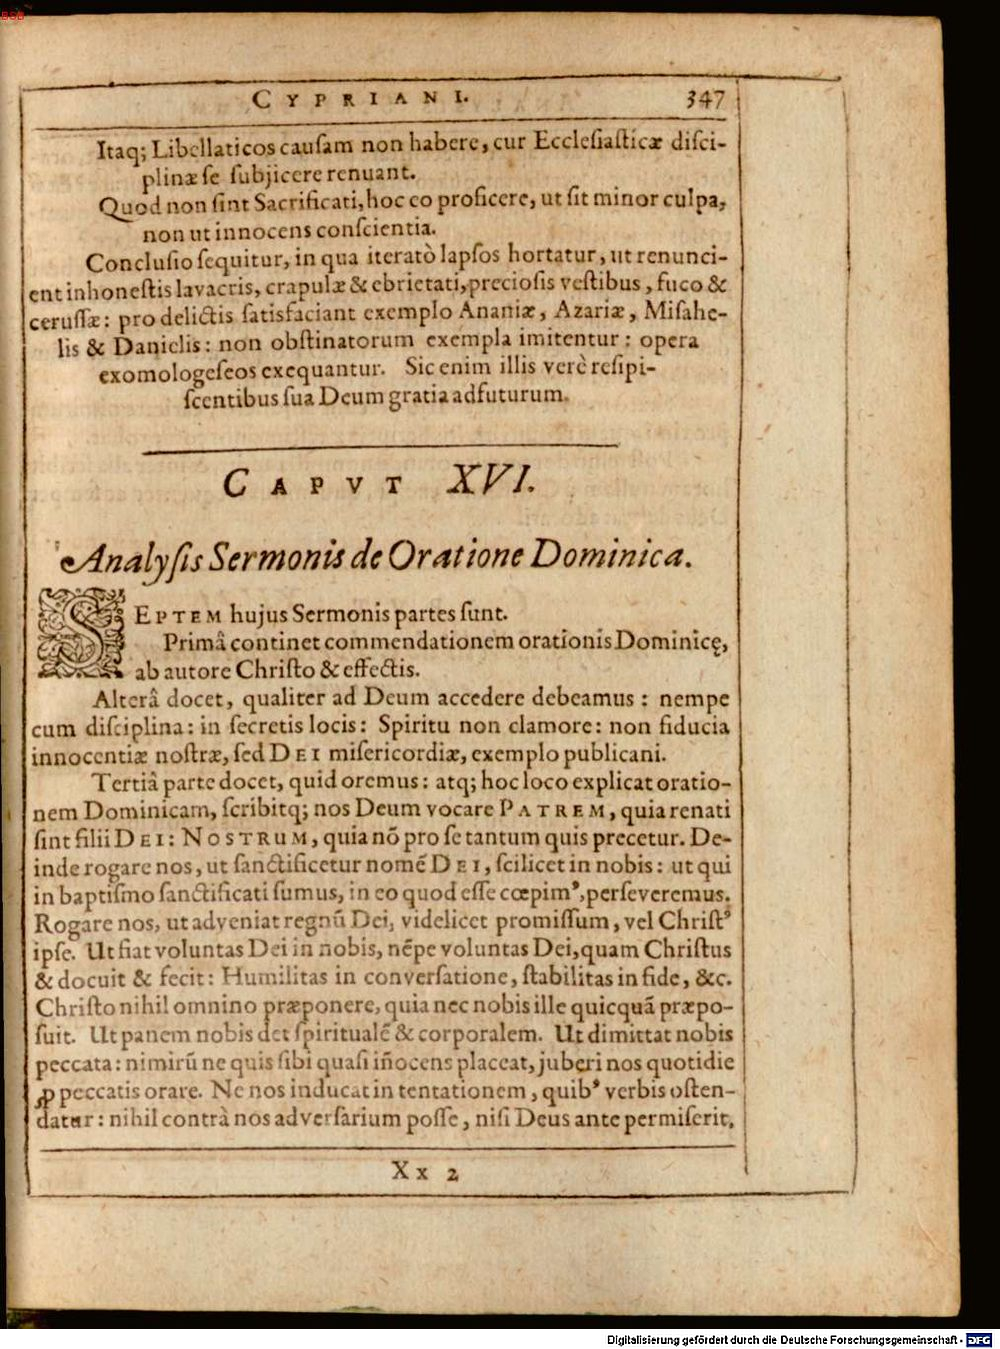 BSB
CYPRIANI. 347
Itaq; Libellaticos cauſam non habere, cur Eccleſiaſticæ diſci-
plinæ ſe ſubjicere renuant.
Quod non ſint Sacrificati, hoc eo proficere, ut ſit minor culpa,
non ut innocens conſcientia.
Concluſio ſequitur, in qua iteratò lapſos hortatur, ut renunci-
ent inhoneſtis lavacris, crapulæ & ebrietati, precioſis veſtibus, fuco &
ceruſſæ: pro delictis ſatisfaciant exemplo Ananiæ, Azariæ, Miſahe-
lis & Danielis: non obſtinatorum exempla imitentur: opera
exomologeſeos exequantur. Sic enim illis verè reſipi-
ſcentibus ſua Deum gratia adfuturum.
CAPVT XVI.
Analyſis Sermonis de Oratione Dominica.
SEPTEM hujus Sermonis partes ſunt.
Primâ continet commendationem orationis Dominicę,
ab autore Chriſto & effectis.
Alterâ docet, qualiter ad Deum accedere debeamus: nempe
cum diſciplina: in ſecretis locis: Spiritu non clamore: non fiducia
innocentiæ noſtræ, ſed DEI miſericordiæ, exemplo publicani.
Tertiâ parte docet, quid oremus: atq; hoc loco explicat oratio-
nem Dominicam, ſcribitq; nos Deum vocare PATREM, quia renati
ſint filii DEI: NOSTRUM, quia nõ pro ſe tantum quis precetur. De-
inde rogare nos, ut ſanctificetur nomẽ DEI, ſcilicet in nobis: ut qui
in baptiſmo ſanctificati ſumus, in eo quod eſſe cœpimꝰ, perſeveremus.
Rogare nos, ut adveniat regnũ Dei, videlicet promiſſum, vel Chriſtꝰ
ipſe. Ut fiat voluntas Dei in nobis, nẽpe voluntas Dei, quam Chriſtus
& docuit & fecit: Humilitas in converſatione, ſtabilitas in fide, &c.
Chriſto nihil omnino præponere, quia nec nobis ille quicquã præpo-
ſuit. Ut panem nobis det ſpiritualẽ & corporalem. Ut dimittat nobis
peccata: nimirũ ne quis ſibi quaſi iñocens placeat, juberi nos quotidie
ꝓ peccatis orare. Ne nos inducat in tentationem, quibꝰ verbis oſten-
datur: nihil contrà nos adverſarium poſſe, niſi Deus ante permiſerit,
Xx 2
Digitalisierung gefördert durch die Deutsche Forschungsgemeinschaft - DFG